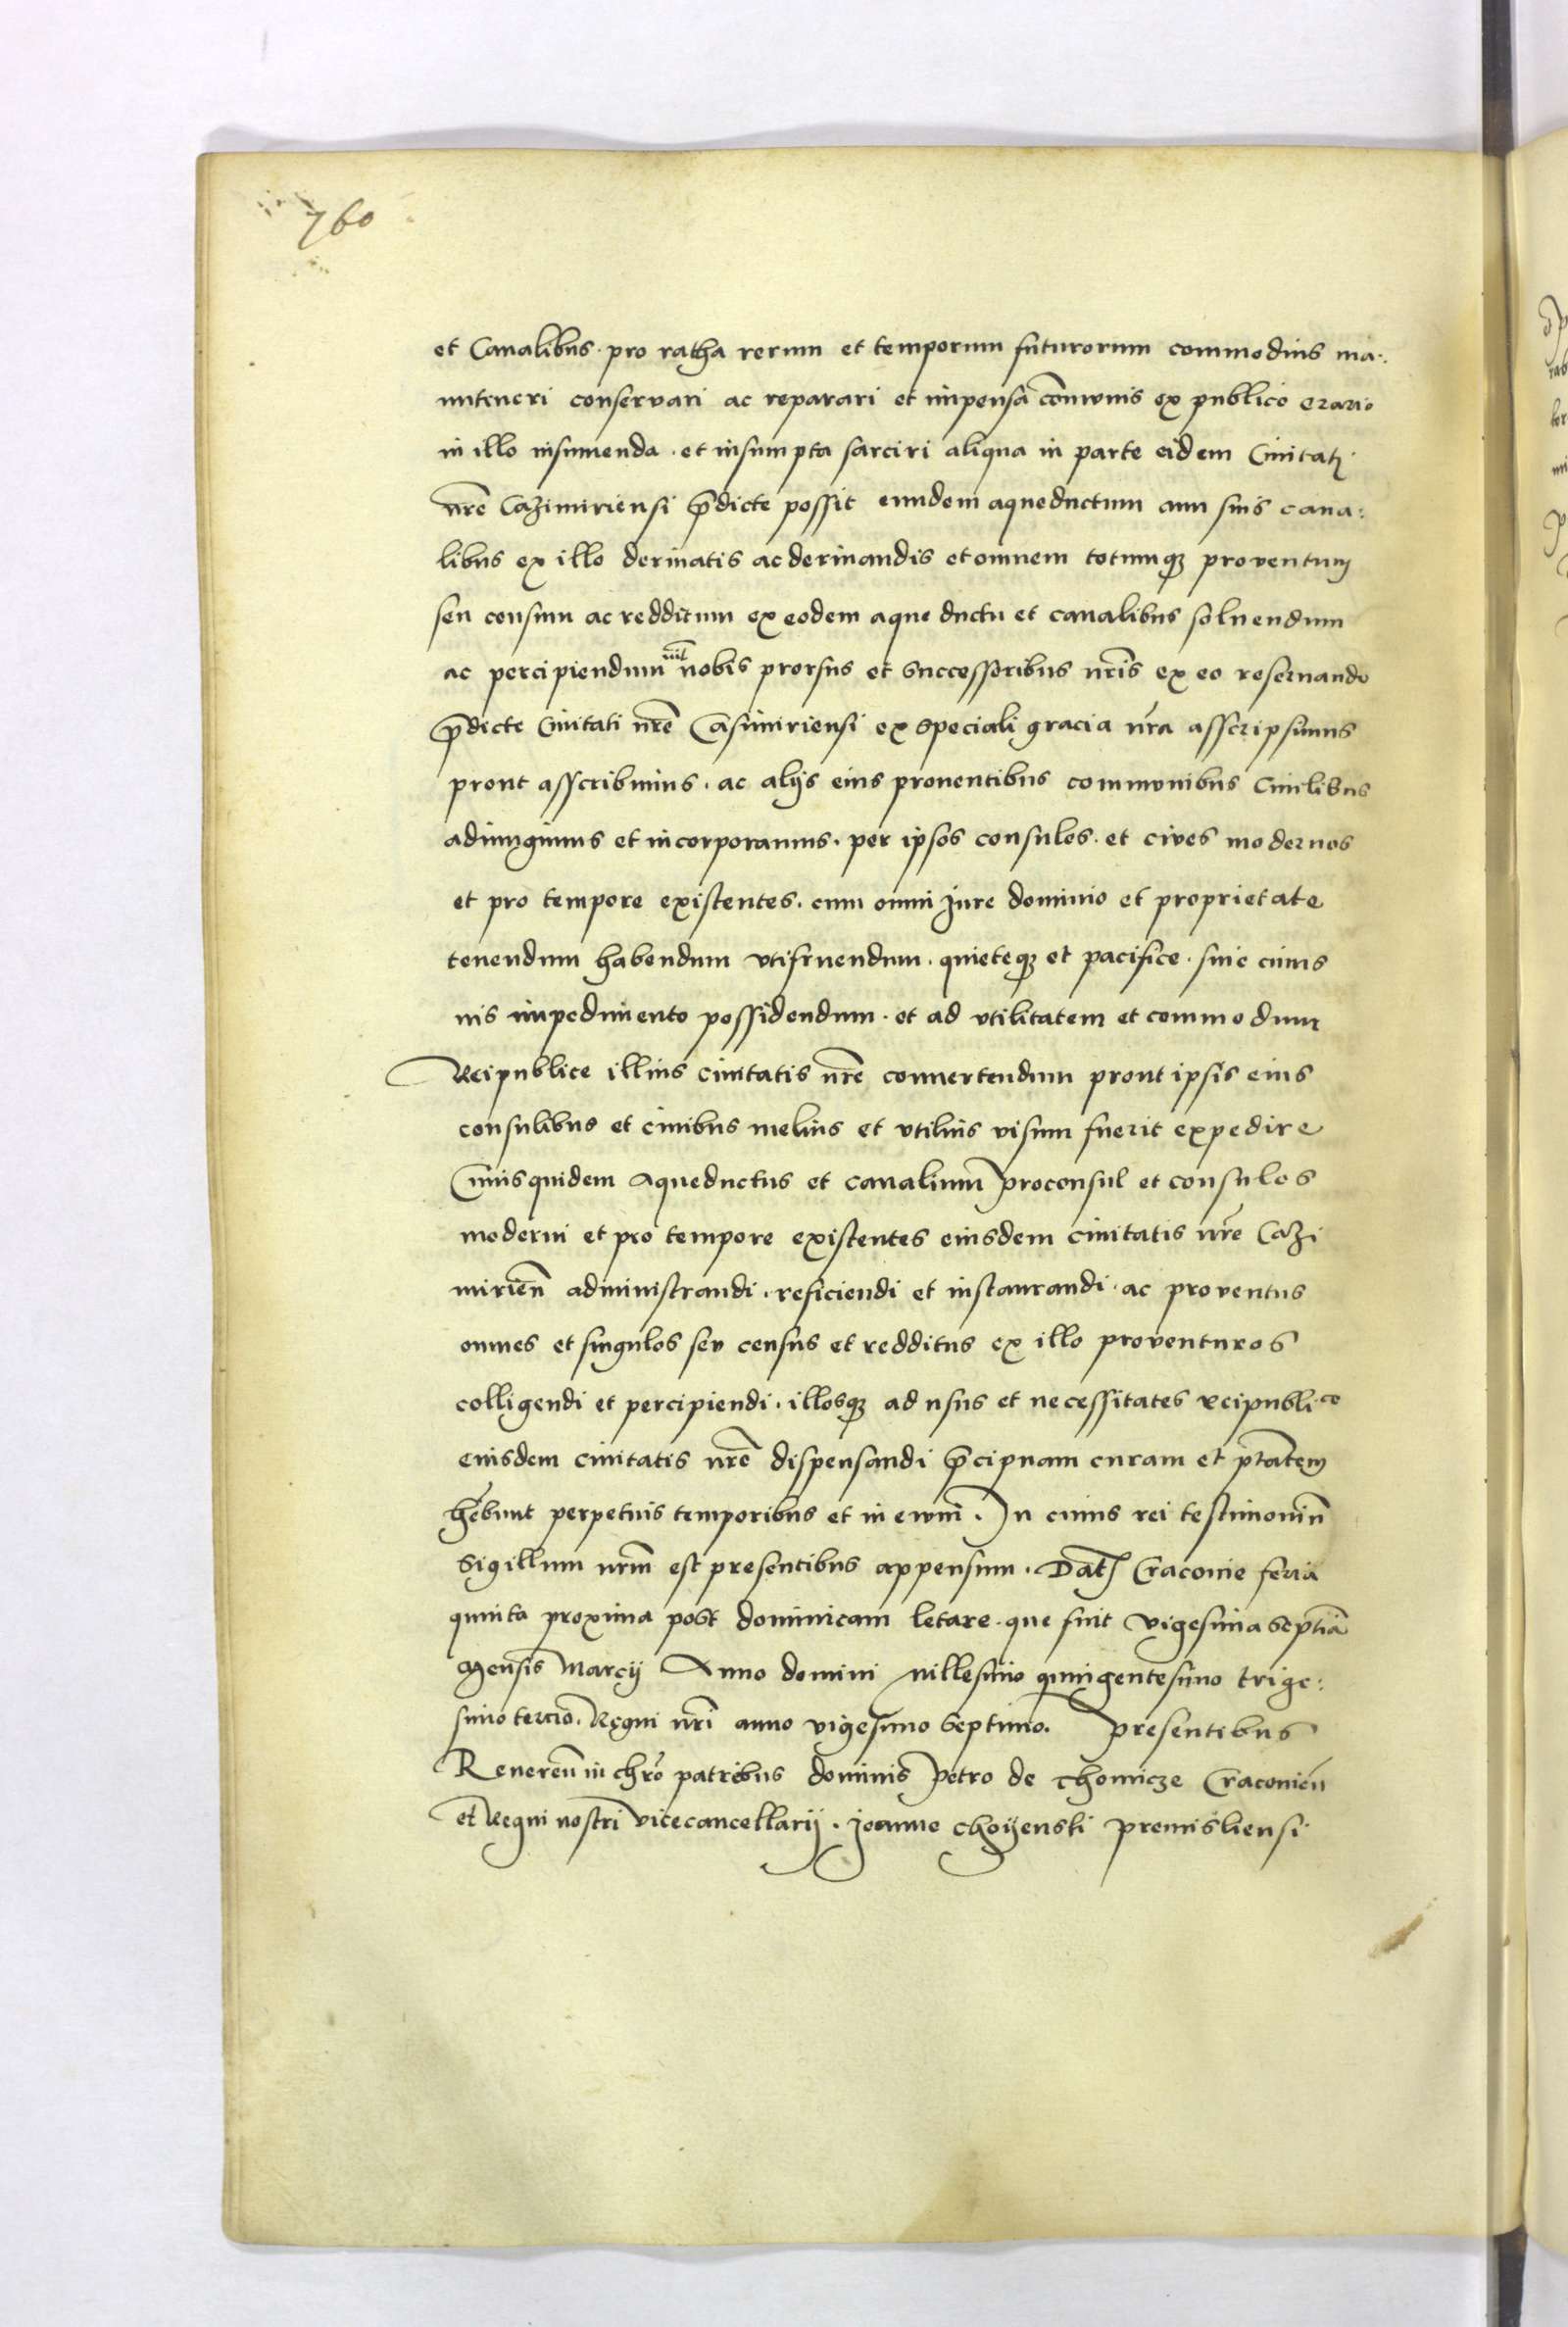 760
et Canalibus · pro ratha rerum et temporum futurorum commodius ma:
nuteneri conservari ac reparari et impensa cōmunis ex publico erario
in illo insumenda · et insumpta sarciri aliqua in parte eidem Civitati
nrē Cazimiriensi p̄dicte possit eundem aqueductum cum suis cana:
libus ex illo derivatis ac derivandis et omnem totumqȝ proventum
seu censum ac redditum ex eodem aque ductu et canalibus solvendum
ac percipiendum nīl nobis prorsus et Successoribus nr̄is ex eo reservando
p̄dicte Civitati nrē Casimiriensi ex speciali gracia nr̄a asscripsimus
prout asscribimus · ac alijs eius proventibus communibus Civilibus
adiungimus et incorporamus · per ipsos consules · et cives modernos
et pro tempore existentes · cum omni Jure dominio et proprietate
tenendum habendum vtifruendum · quieteqȝ et pacifice · sine cuius
vis impedimento possidendum · et ad vtilitatem et commodum
Reipublice illius civitatis nrē convertendum prout ipsis eius
consulibus et civibus melius et vtilius visum fuerit expedire
Cuius quidem Aqueductus et canalium proconsul et consules
moderni et pro tempore existentes eiusdem civitatis nrē Cazi
mirieñ administrandi · reficiendi et instaurandi · ac proventus
omnes et singulos sev census et redditus ex illo proventuros
colligendi et percipiendi · illosqȝ ad usus et necessitates reipublice
eiusdem civitatis nrē dispensandi p̄cipuam curam et p̄tatem
hēbunt perpetuis temporibus et in ewm̄ · In cuius rei testimoniū
Sigillum nrm̄ est presentibus appensum · Dat̄ Craconie feria
quinta proxima post dominicam letare · que fuit vigesima septīa
Mensis Marcij Anno domini Millesimo quingentesimo trige:
simo tercio · Regni nr̄i anno vigesimo Septimo · presentibus
Reveren̄ in chrō patribus dominis Petro de Thomicze Cracovien̄
et Regni nostri vicecancellarij · Joanne Choijenski premisliensi